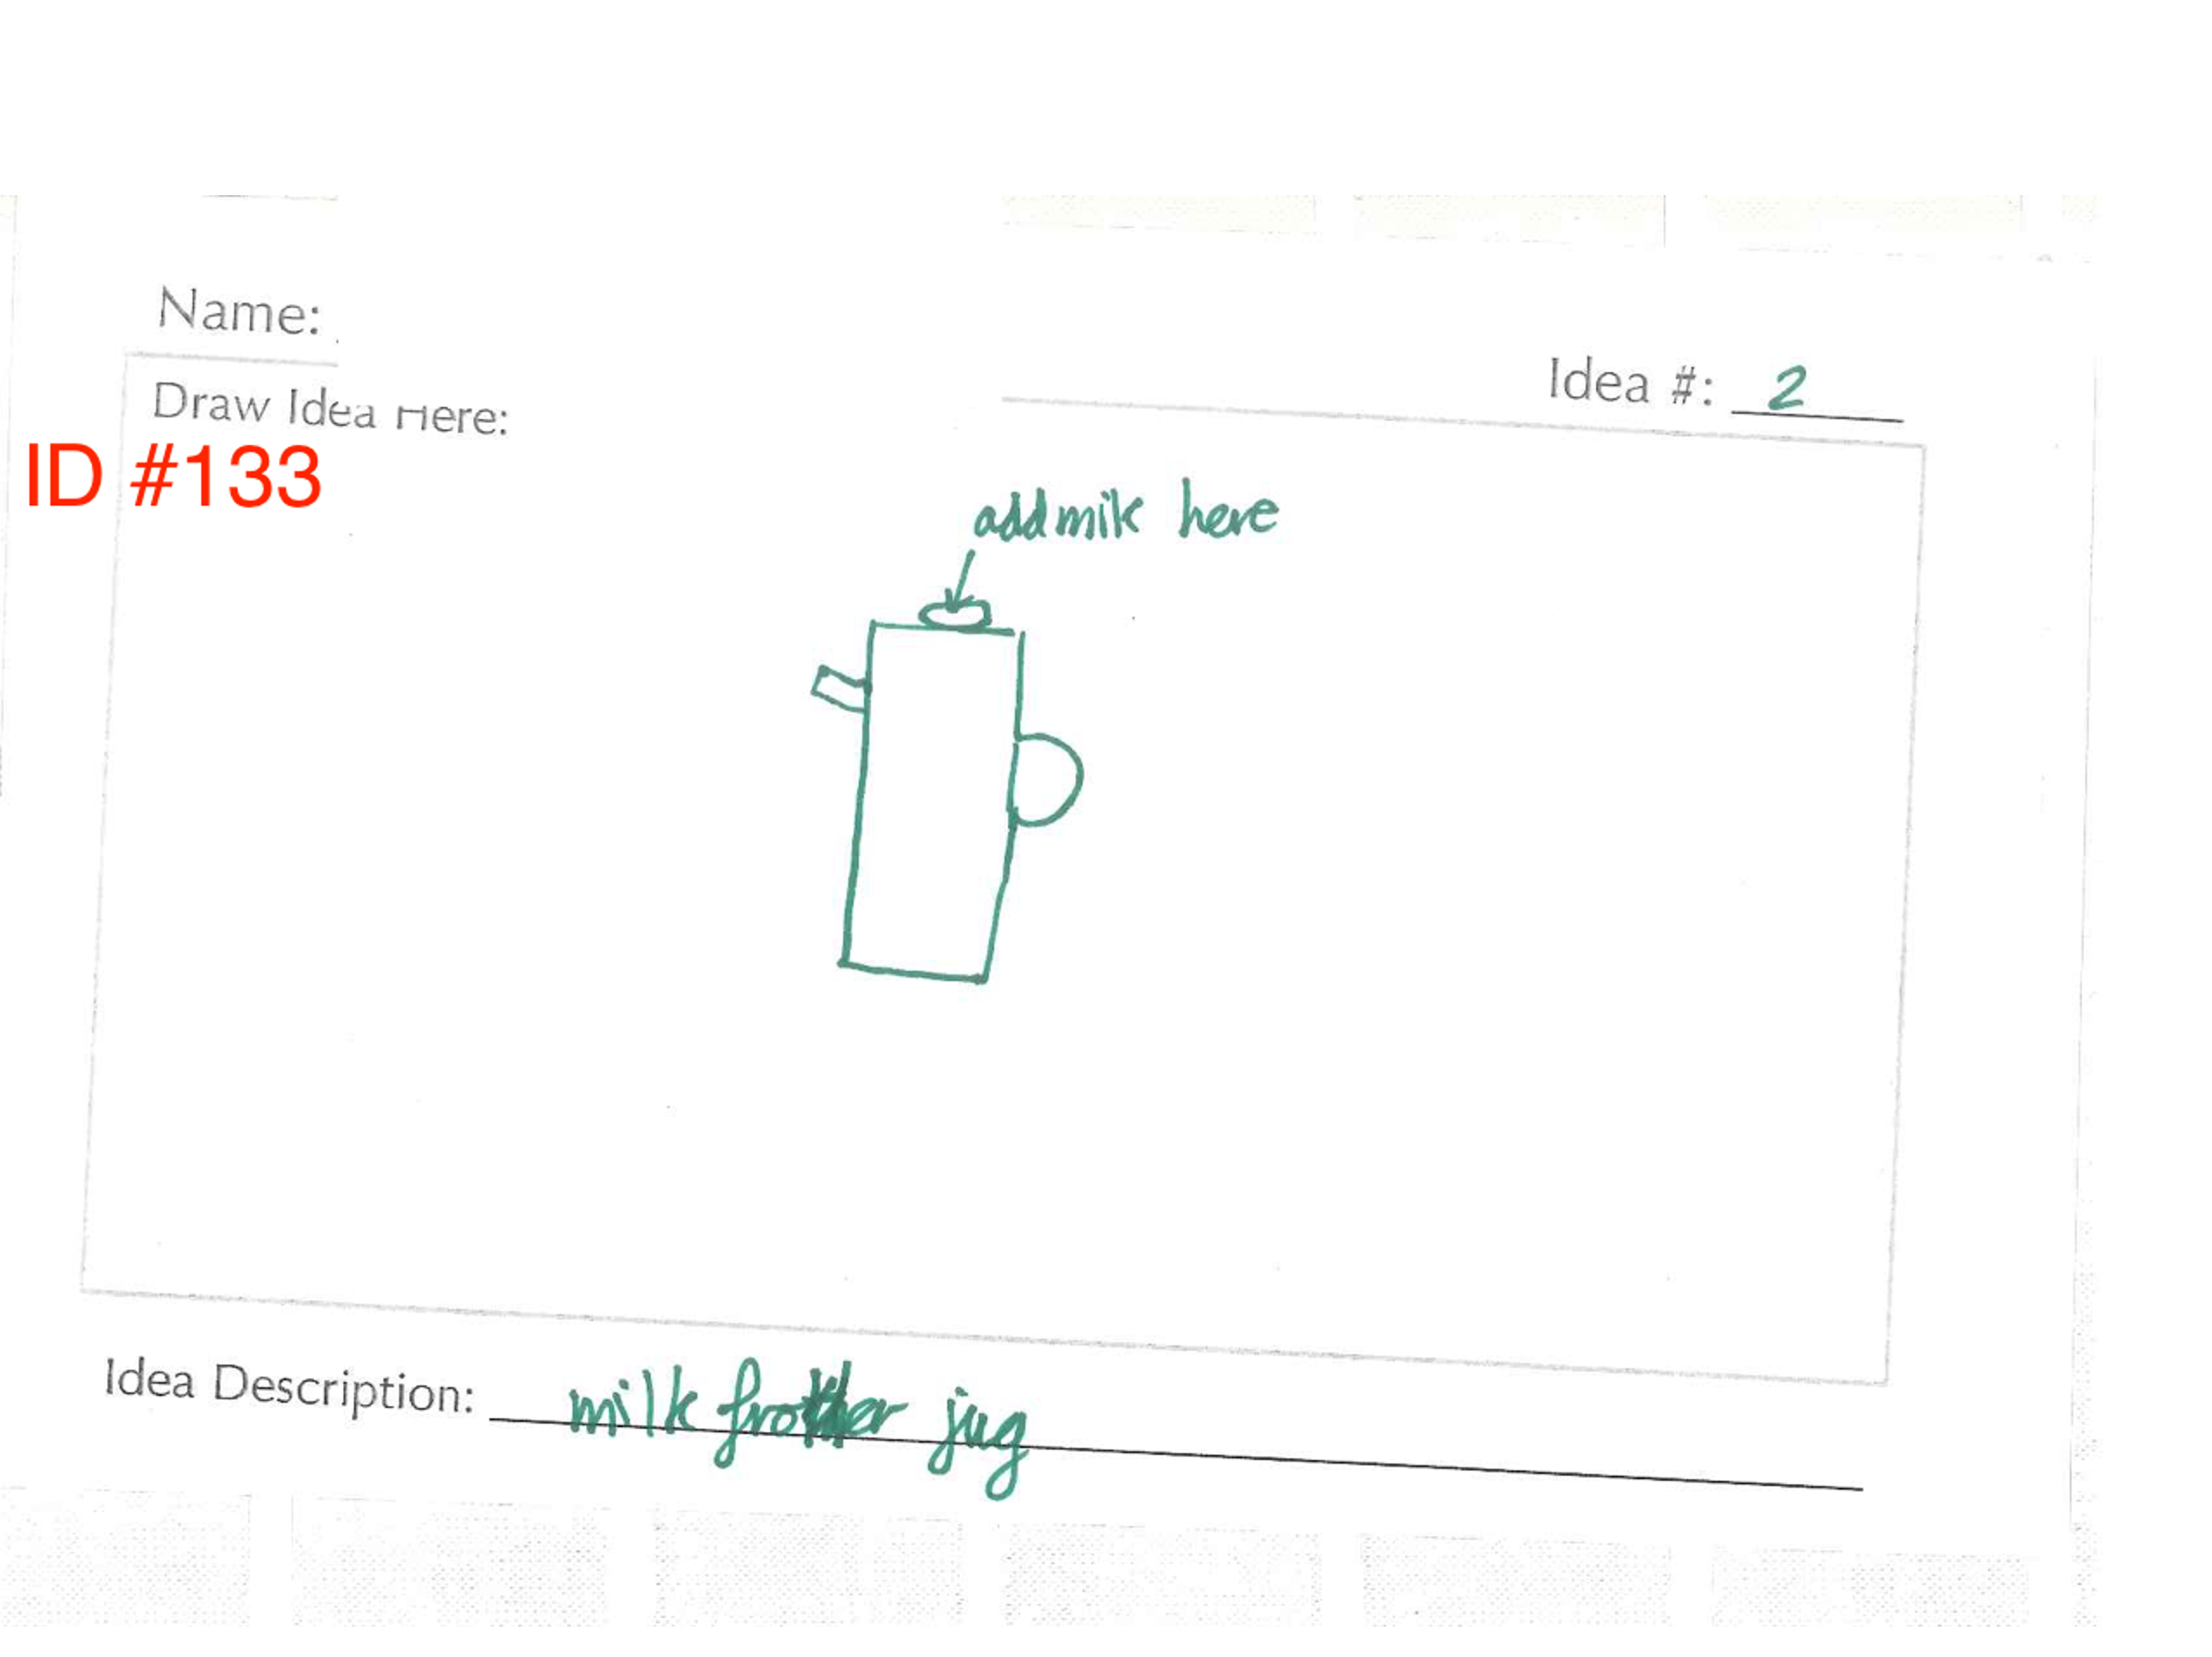 Name:
Idea #: 2
Draw Idea Here:
ID #133
add milk here
Idea Description: milk frother jug